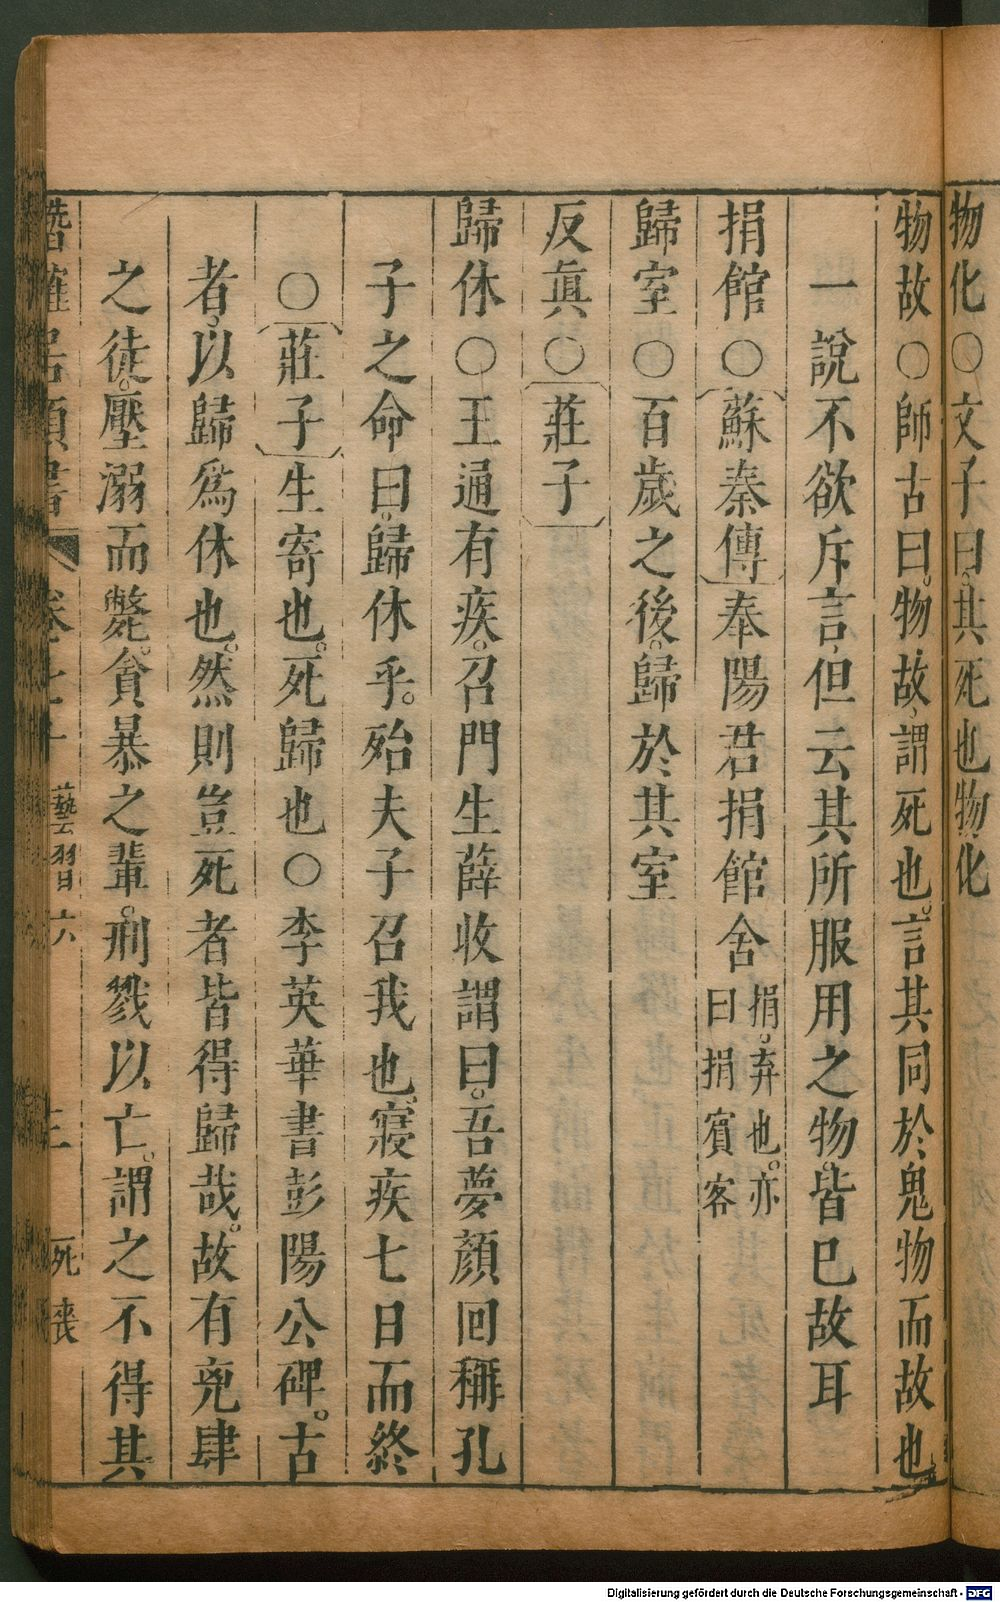 物化○文子曰其死也物化
物故○師古曰物故謂死也言其同於鬼物而故也
一說不欲斥言但云其所服用之物皆已故耳
捐館○蘇秦傳奉陽君捐館舍捐弃也亦曰捐賓客
歸室○百歲之後歸於其室
反眞○莊子
歸休○王通有疾召門生薛收謂曰吾夢顏回稱孔
子之命曰歸休乎殆夫子召我也寢疾七日而終
○莊子生寄也死歸也○李英華書彭陽公碑古
者以歸爲休也然則豈死者皆得歸哉故有兇肆
之徒壓溺而斃貪暴之輩刑戮以亡謂之不得其
藝習六 死喪
Digitalisierung gefördert durch die Deutsche Forschungsgemeinschaft - DFG